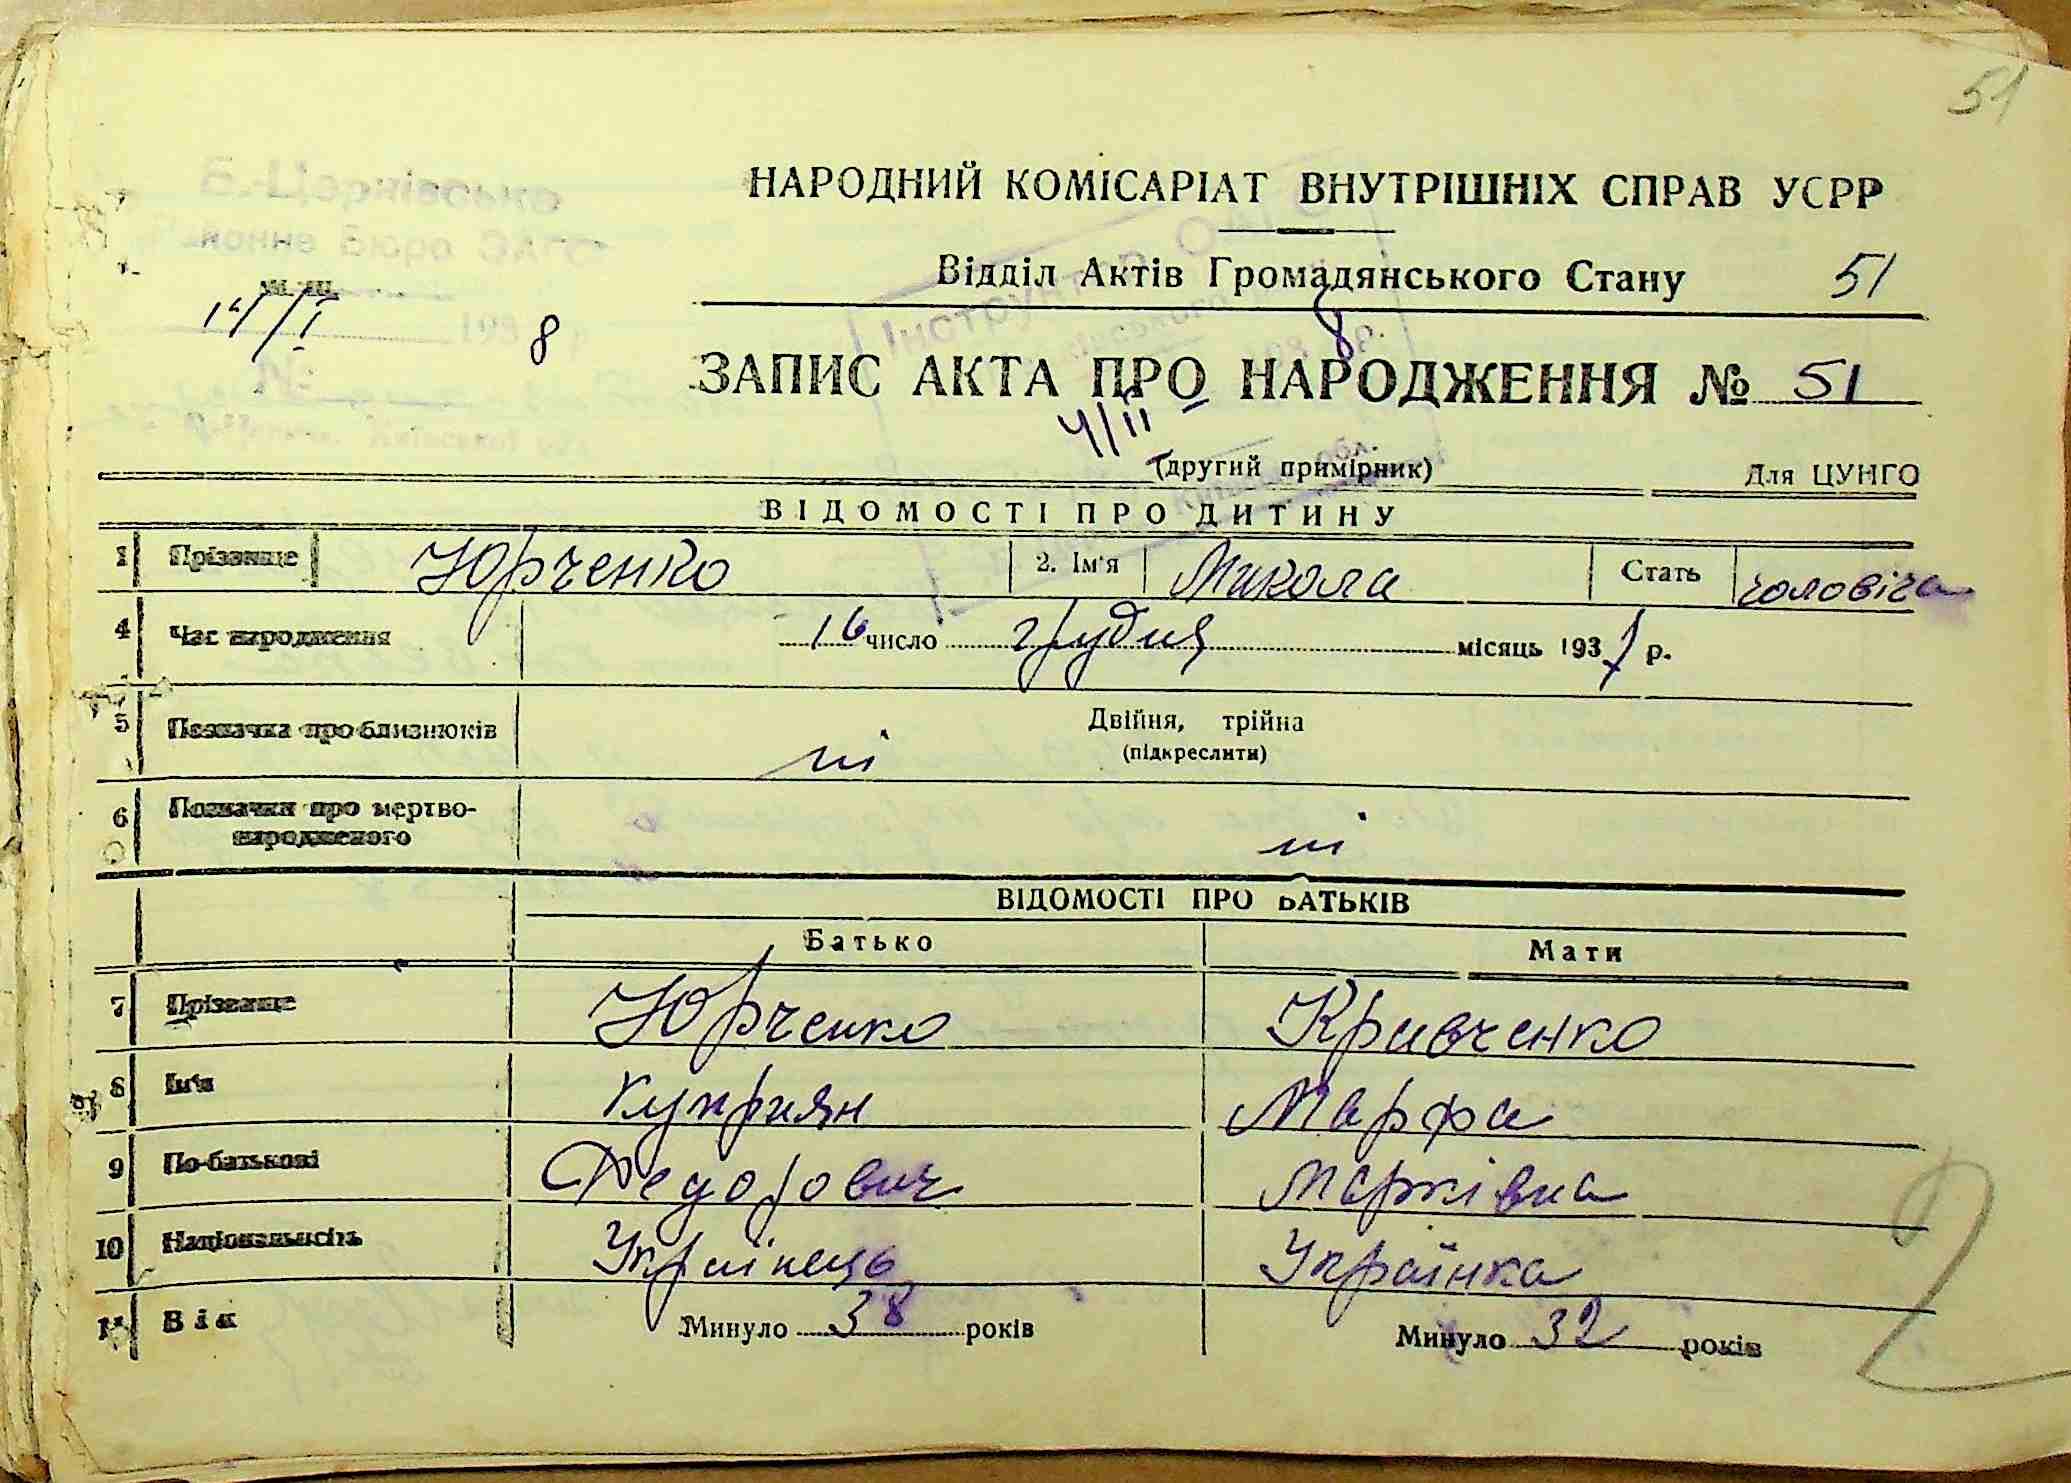 51
НАРОДНИЙ КОМІСАРІАТ ВНУТРІШНІХ СПРАВ УСРР
Б.-Церківське
Бюро ЗАГС
Відділ Актів Громадянського Стану 51
14/I 193 8 р
Інструктор
8 р.
ЗАПИС АКТА ПРО НАРОДЖЕННЯ № 51
4/II
Київської обл.
(другий примірник) Для ЦУНГО
ВІДОМОСТІ ПРО ДИТИНУ
1 Прізвище Юрченко 2. Ім'я Микола Стать чоловіча
4 Час народження 16 число грудня місяць 1937 р.
5 Позначка про близнюків ні Двійня, трійна
(підкреслити)
6 Позначки про мертво-
народженого ні
ВІДОМОСТІ ПРО БАТЬКІВ
Батько Мати
7 Прізвище Юрченко Кривченко
8 Ім'я Куприян Марфа
9 По-батькові Федорович Марківна
10 Національність Українець Українка
11 Вік Минуло 38 років Минуло 32 років
2